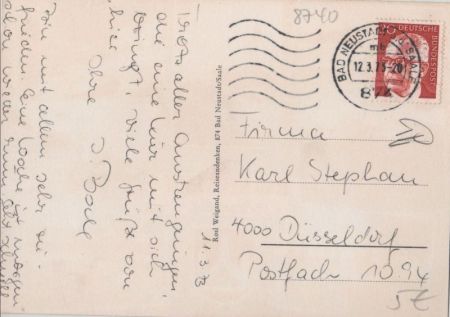 8740
BAD NEUSTADT A.D. SAALE
12.3.73-20
874
DEUTSCHE
BUNDESPOST
Firma
Karl Stephan
4000 Düsseldorf
Postfach 1094
5€
Rosl Weigand, Reiseandenken, 874 Bad Neustadt/Saale
11.3.73
Trotz aller Anstrengungen,
die eine Kur mit sich
bringt viele Grüße von
hier
Ihre
bin mit allem sehr zu-
frieden. Eine Woche ist morgen
schon wieder